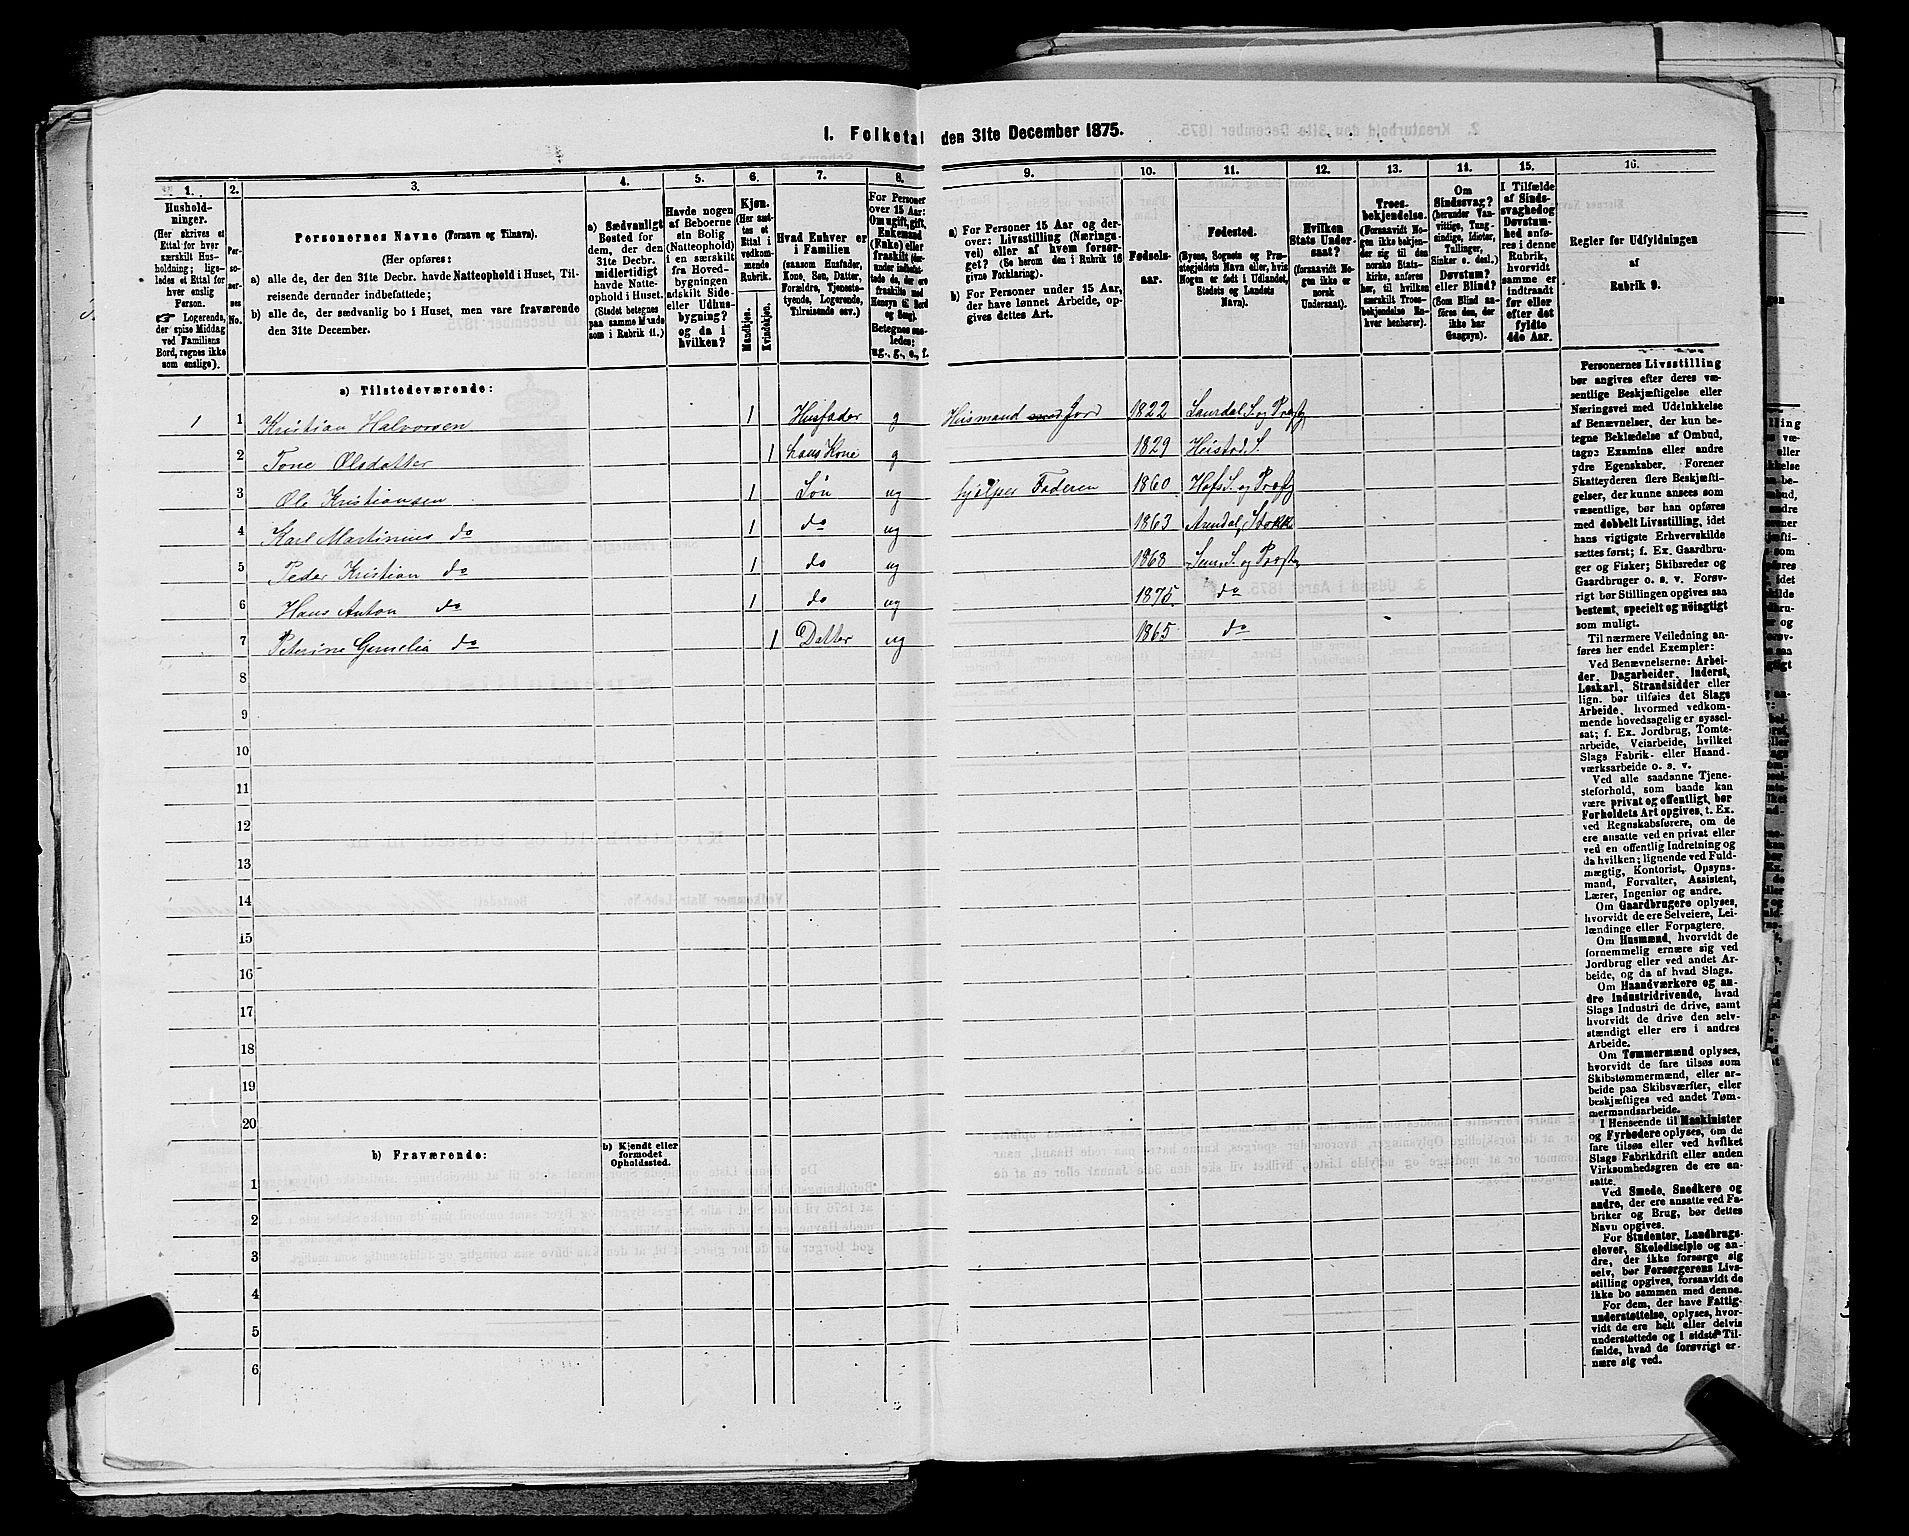 1. Folketal den 31te December 1875.
1. 2. 3. 4. 5. 6. 7. 8. 9. 10. 11. 12. 13. 14. 15. 16.
Hushold-
ninger.
(Her skrives et
Ettal for hver
særskilt Hus-
holdning; lige-
ledes et Ettal for
hver enslig
Person.
☞ Logerende,
der spise Middag
ved Familiens
Bord, regnes ikke
som enslige).
Per-
so-
ner-
nes
No.
Personernes Navne (Fornavn og Tilnavn).
(Her opføres:
a) alle de, der den 31te Decbr. havde Natteophold i Huset, Til-
reisende derunder indbefattede;
b) alle de, der sædvanlig bo i Huset, men vare fraværende
den 31te December.
a) Sædvanligt
Bosted for
dem, der den
31te Decbr.
midlertidigt
havde Natte-
ophold i Huset.
(Stedet betegnes
paa samme Maade
som i Rubrik 11.)
Havde nogen
af Beboerne
sin Bolig
(Natteophold)
i en særskilt
fra Hoved-
bygningen
adskilt Side-
eller Udhus-
bygning?
og da i
hvilken?
Kjøn.
(Her sæt-
tes et
Ettal i
vedkom-
mende
Rubrik.
Mandkjøn.
Kvindekjøn.
Hvad Enhver er
i Familien
(saasom Husfader,
Kone, Søn, Datter,
Forældre, Tjeneste-
tyende, Logerende,
Tilreisende osv.)
For Personer
over 15 Aar:
Om ugift, gift,
Enkemand
(Enke) eller
fraskilt (der-
under indbefat-
tede de, der ere
fraskilte med
Hensyn til Bord
og Seng).
Betegnes saa-
ledes:
ug., g., e., f.
a) For Personer 15 Aar og der-
over: Livsstilling (Nærings-
vei) eller af hvem forsør-
get? (Se herom den i Rubrik 16
givne Forklaring).
b) For Personer under 15 Aar,
der have lønnet Arbeide, op-
gives dettes Art.
Fødsels-
aar.
Fødested.
(Byens, Sognets og Præ-
stegjeldets Navn eller, hvis
Nogen er født i Udlandet,
Stedets og Landets
Navn).
Hvilken
Stats Under-
saat?
(forsaavidt No-
gen ikke er
norsk
Undersaat).
Troes-
bekjendelse.
(Forsaavidt No-
gen ikke bekjen-
der sig til den
norske Stats-
kirke, anføres
her, til hvilken
særskilt Troes-
bekjendelse En-
hver henhører).
Om
Sindssvag?
(herunder Van-
vittige, Tung-
sindige, Idioter,
Tullinger,
Sinker o. desl.)
Døvstum?
eller Blind?
(Som Blind an-
føres den, der
ikke har
Gangsyn).
I Tilfælde
af Sinds-
svaghed og
Døvstum-
hed anføres
i denne
Rubrik,
hvorvidt
samme er
indtraadt
før eller
efter det
fyldte
4de Aar.
Regler for Udfyldningen
af
Rubrik 9.
a) Tilstedeværende:
1 1 Kristian Halvorsen 1 Husfader g Husmand med Jord 1822 Laurdal S. og Præstg
2 Tone Olsdatter 1 hans Kone g 1829 Heistad S.
3 Ole Kristiansen 1 Søn ug hjælper Faderen 1860 Hofs S. og Præstg
4 Karl Martinius do 1 do ug 1863 Arendal, Stokke
5 Peder Kristian do 1 do ug 1868 Sems S. og Præstg
6 Hans Anton do 1 do ug 1875 do
7 Peterine Cornelia do 1 Datter ug 1865 do
8
9
10
11
12
13
14
15
16
17
18
19
20
b) Fraværende:
b) Kjendt eller
formodet
Opholdssted.
1
2
3
4
5
6
Personernes Livsstilling
bør angives efter deres væ-
sentlige Beskjæftigelse eller
Næringsvei med Udelukkelse
af Benævnelser, der kun be-
tegne Beklædelse af Ombud,
tagne Examina eller andre
ydre Egenskaber. Forener
Skatteyderen flere Beskjæfti-
gelser, der kunne ansees som
væsentlige, bør han opføres
med dobbelt Livsstilling, idet
hans vigtigste Erhvervskilde
sættes først; f. Ex. Gaardbru-
ger og Fisker; Skibsreder og
Gaardbruger o. s. v. Forøv-
rigt bør Stillingen opgives saa
bestemt, specielt og nøiagtigt
som muligt.
Til nærmere Veiledning an-
føres her endel Exempler:
Ved Benævnelserne: Arbei-
der, Dagarbeider, Inderst,
Løskarl, Strandsidder eller
lign. bør tilføies det Slags
Arbeide, hvormed vedkom-
mende hovedsagelig er syssel-
sat; f. Ex. Jordbrug, Tomte-
arbeide, Veiarbeide, hvilket
Slags Fabrik- eller Haand-
værksarbeide o. s. v.
Ved alle saadanne Tjene-
steforhold, som baade kan
være privat og offentligt, bør
Forholdets Art opgives, t. Ex.
ved Regnskabsførere, om de
ere ansatte ved en privat eller
ved en offentlig Indretning og
da hvilken; lignende ved Fuld-
mægtig, Kontorist, Opsyns-
mand, Forvalter, Assistent,
Lærer, Ingeniør og andre.
Om Gaardbrugere oplyses,
hvorvidt de ere Selveiere, Lei-
lændinge eller Forpagtere.
Om Husmænd, hvorvidt de
fornemmelig ernære sig ved
Jordbrug eller ved andet Ar-
beide, og da af hvad Slags.
Om Haandværkere og an-
dre Industridrivende, hvad
Slags Industri de drive, samt
hvorvidt de drive den selv-
stændigt eller ere i andres
Arbeide.
Om Tømmermænd oplyses,
hvorvidt de fare tilsøs som
Skibstømmermænd, eller ar-
beide paa Skibsværfter, eller
beskjæftiges ved andet Tøm-
mermandsarbeide.
I Henseende til Maskinister
og Fyrbødere oplyses, om de
fare tilsøs eller ved hvilket
Slags Fabrikdrift eller anden
Virksomhedsgren de ere an-
satte.
Ved Smede, Snedkere og
andre, der ere ansatte ved Fa-
briker og Brug, bør dettes
Navn opgives.
For Studenter, Landbrugs-
elever, Skoledisciple og an-
dre, der ikke forsørge sig
selv, bør Forsørgerens Livs-
stilling opgives, forsaavidt de
ikke bo sammen med denne.
For dem, der have Fattig-
understøttelse, oplyses, hvor-
vidt de ere helt eller delvis
understøttede og i sidste Til-
fælde, hvad de forøvrigt er-
nære sig ved.